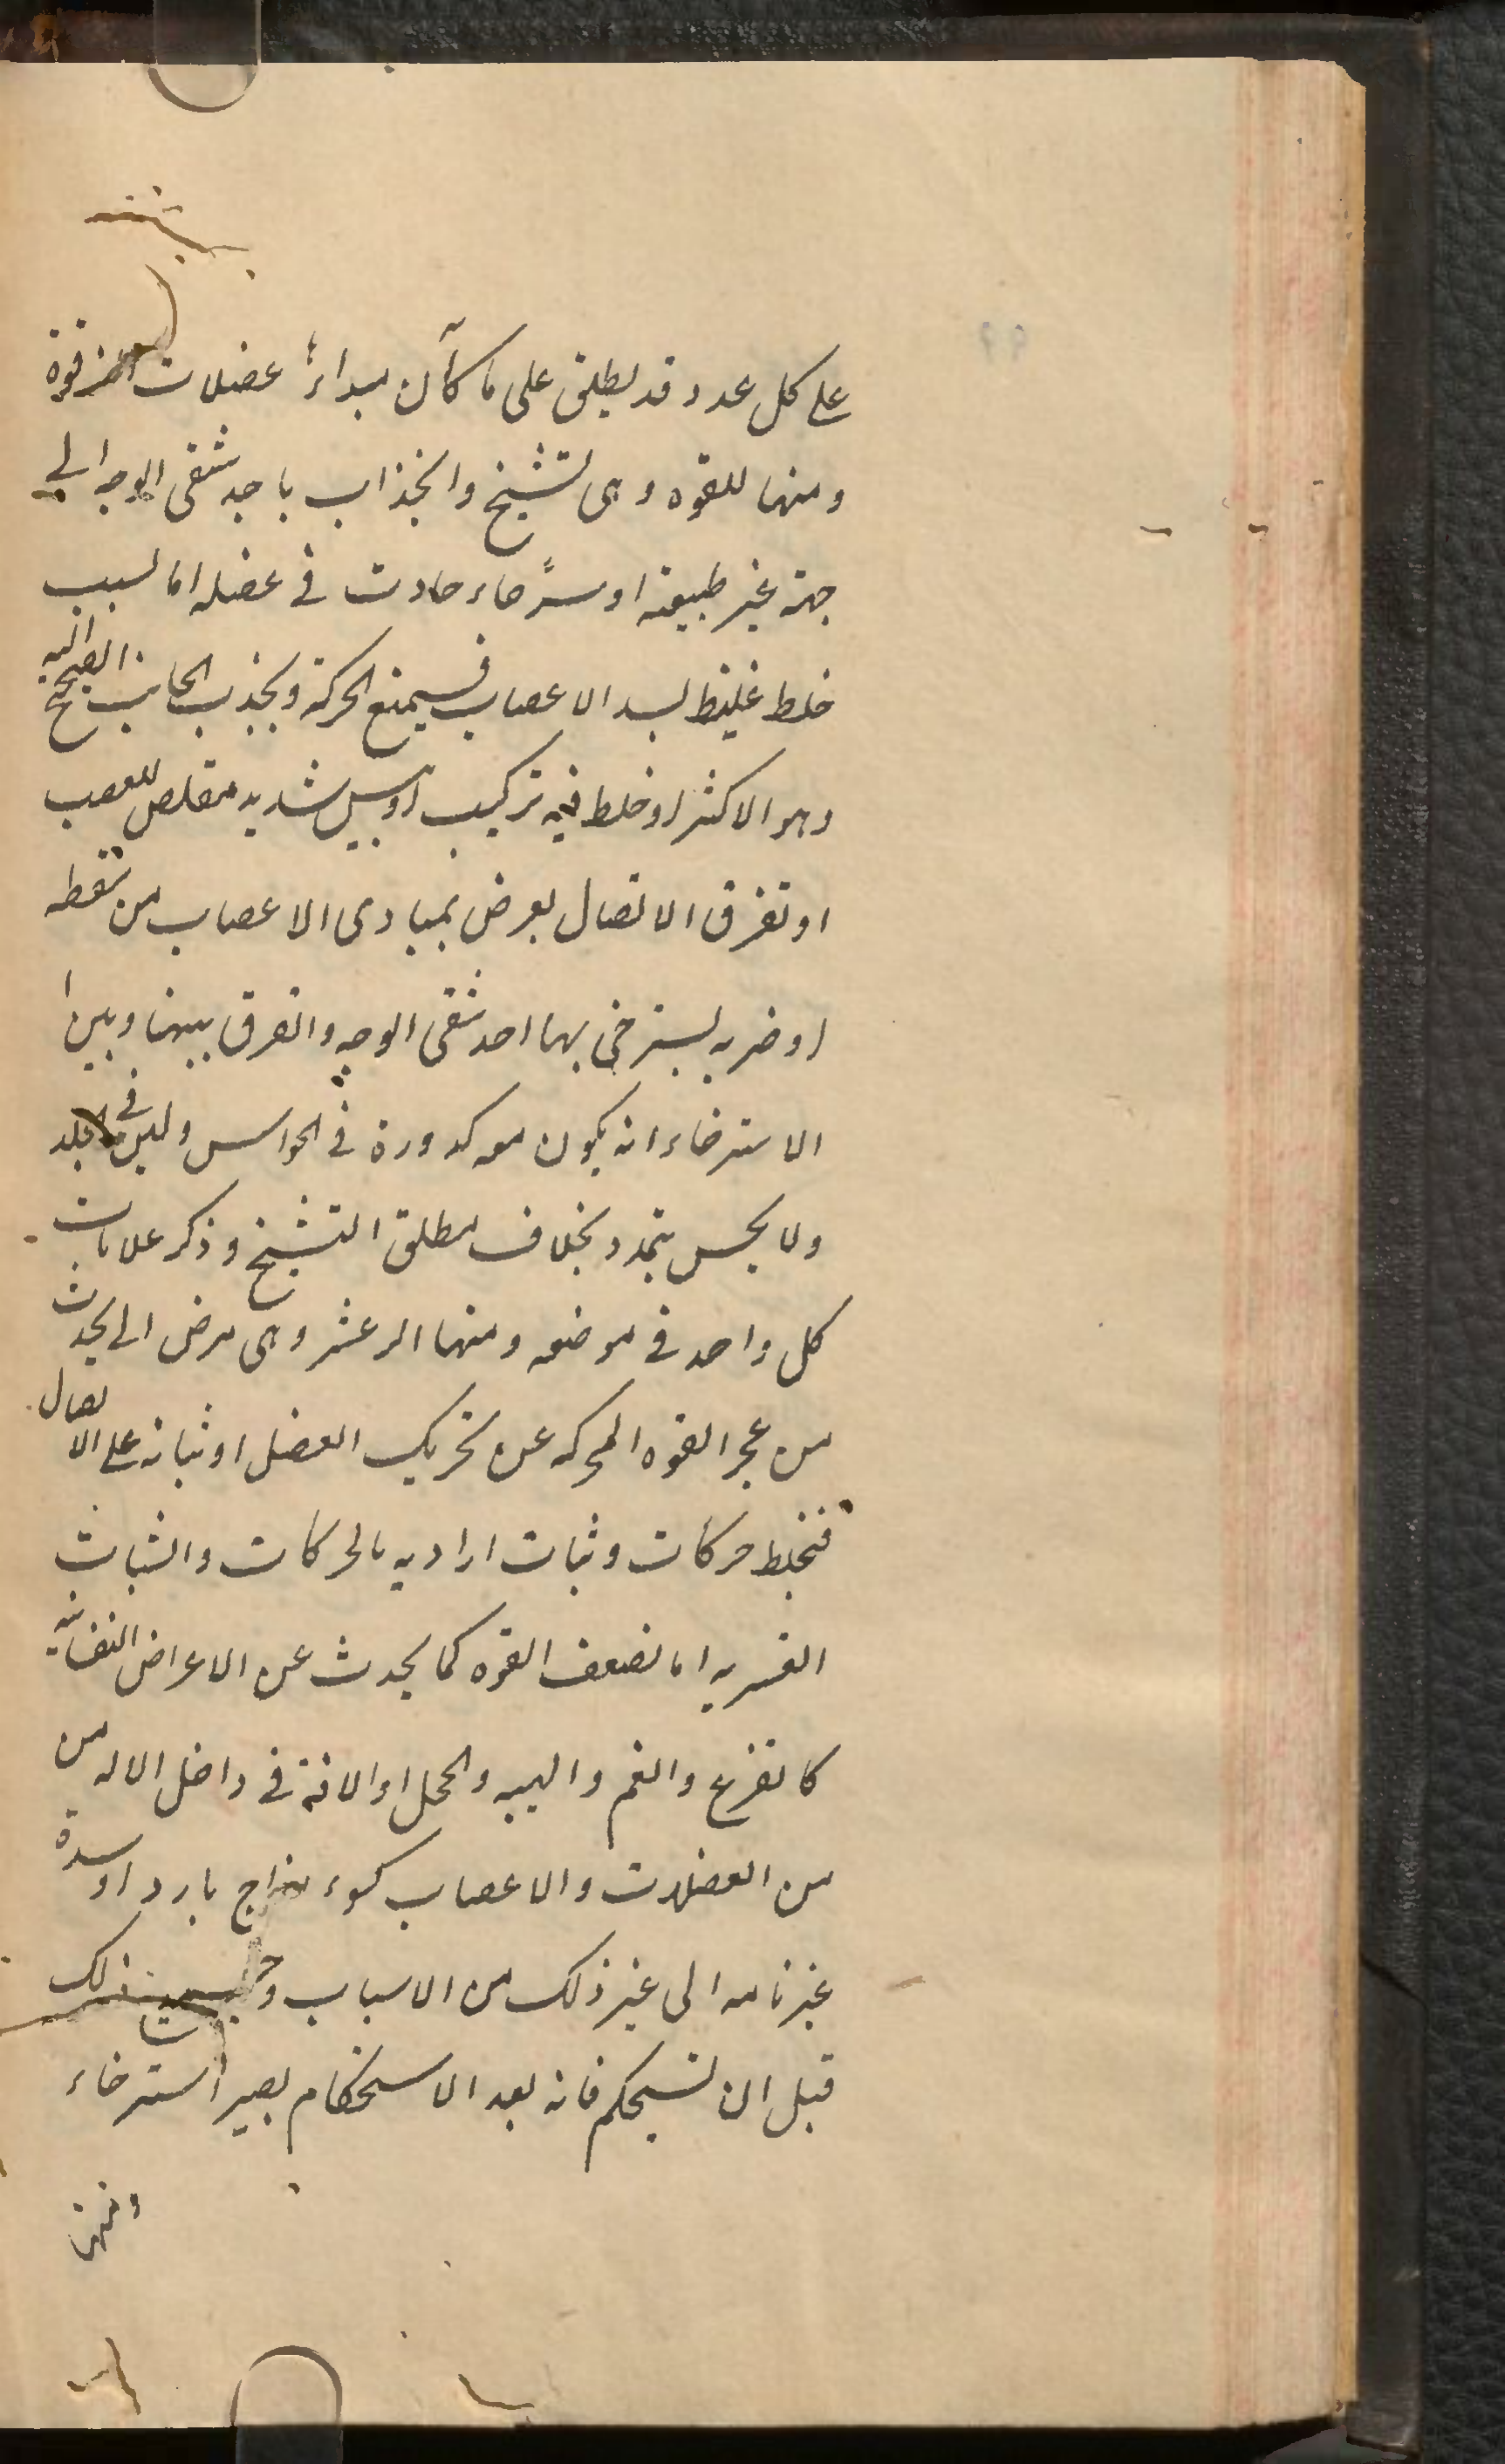 على كل عدد وقد يطلق على ما كان مبداءه عضلات قوة
ومنها للقوه وهى تشنج وانجذاب باحد شقى الوجه الى
جهة غير طبيعته او استرخاء حادث فى عضله اما لسبب
خلط غليظ يسد الاعصاب فيمنع الحركة ويجذب الجانب الصحيح اليه
وهو الاكثر او خلط فيه تركيب او يبس شديد مقلص للعصب
او تفرق الاتصال يعرض بمبادى الاعصاب من سقطه
او ضربه يسترخى بها احد شقى الوجه والفرق بينها وبين
الاسترخاء انه يكون معه كدورة فى الحواس ولين فى الجلد
ولا يحس بتمدد بخلاف مطلق التشنج وذكر علامات
كل واحد فى موضعه ومنها الرعشه وهى مرض الى يحدث
من عجز القوه المحركه عن تحريك العضل او ثباته على الاتصال
فتختلط حركات وثبات اراديه بالحركات والثبات
القسريه اما لضعف القوه كما يحدث عن الاعراض النفسانيه
كالفزع والغم والهيبه والخجل او الافة فى داخل الاله من
من العضلات والاعصاب كسوء مزاج بارد او سدة
غير تامه الى غير ذلك من الاسباب و ذلك
قبل ان تستحكم فانه بعد الاستحكام يصير استرخاء
ومنها